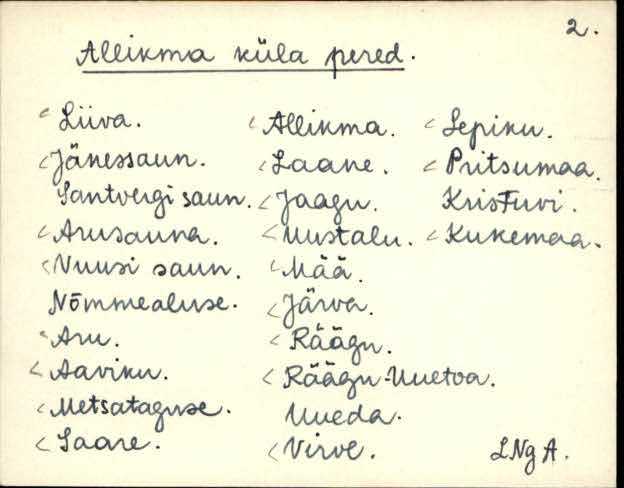 2.
Allikma küla pered.
Liiva.
Jänessaun.
Santvergi saun.
Arusauna.
Vuusi saun.
Nõmmealuse.
Aru.
Aaviku.
Metsataguse.
Saare.
Allikma.
Laane.
Jaagu.
Uustalu.
Mää.
Järva.
Räägu.
Räägu-Uuetoa.
Uueda.
Virve.
Lepiku.
Pritsumaa.
Kristuvi.
Kukemaa.
LNg A.